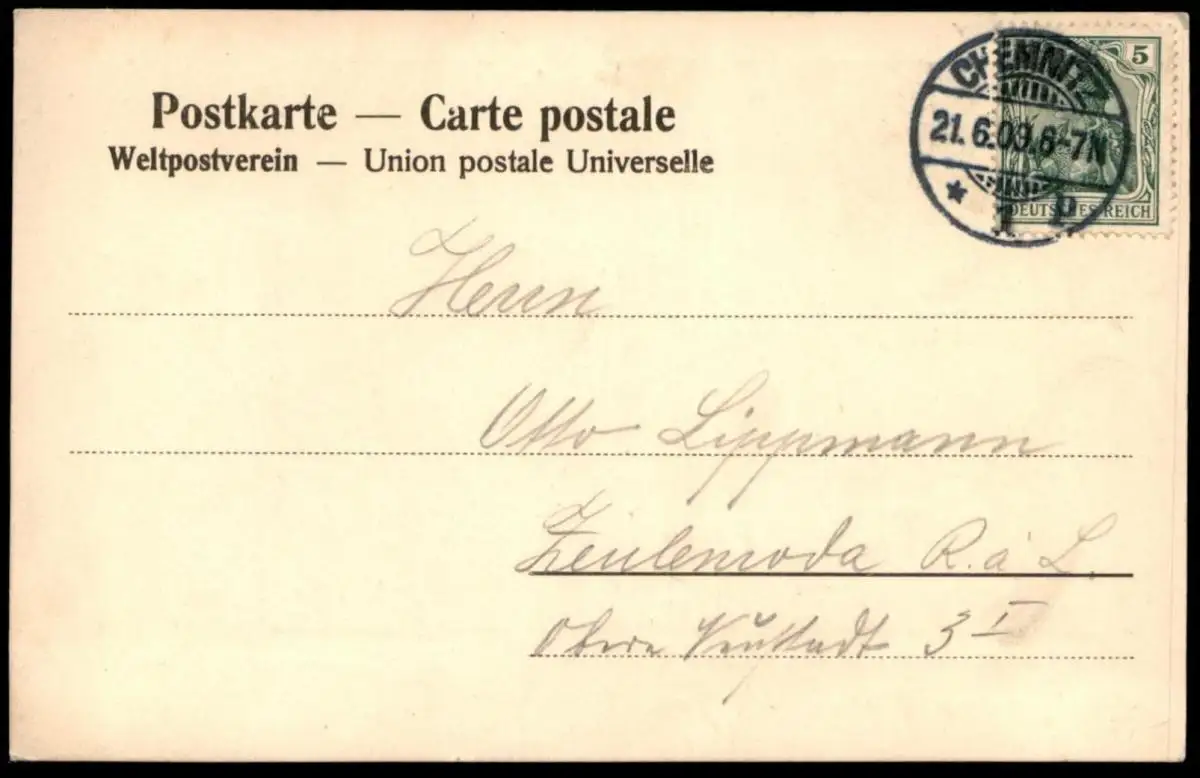 Postkarte — Carte postale
Weltpostverein — Union postale Universelle
CHEMNITZ
21.6.09.6-7N
* 1 p
5
DEUTSCHES REICH
Herrn
Otto Lippmann
Zeulenroda R. ä L.
Obere Neustadt 3 I